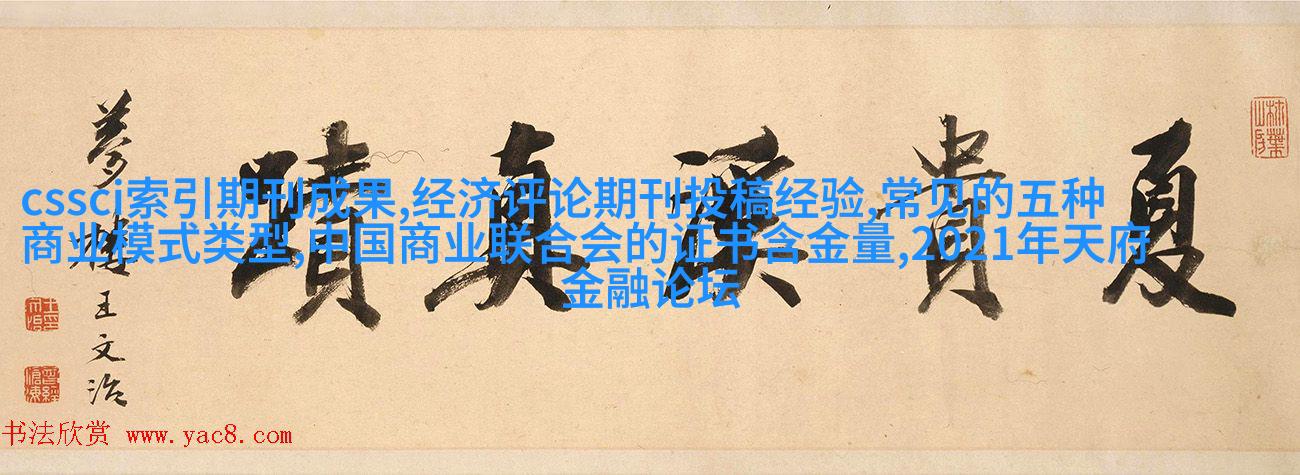 夏貴溪真蹟
夢樓王文治
cssci索引期刊成果,经济评论期刊投稿经验,常见的五种
商业模式类型,中国商业联合会的证书含金量,2021年天府
金融论坛
书法欣赏 www.yac8.com